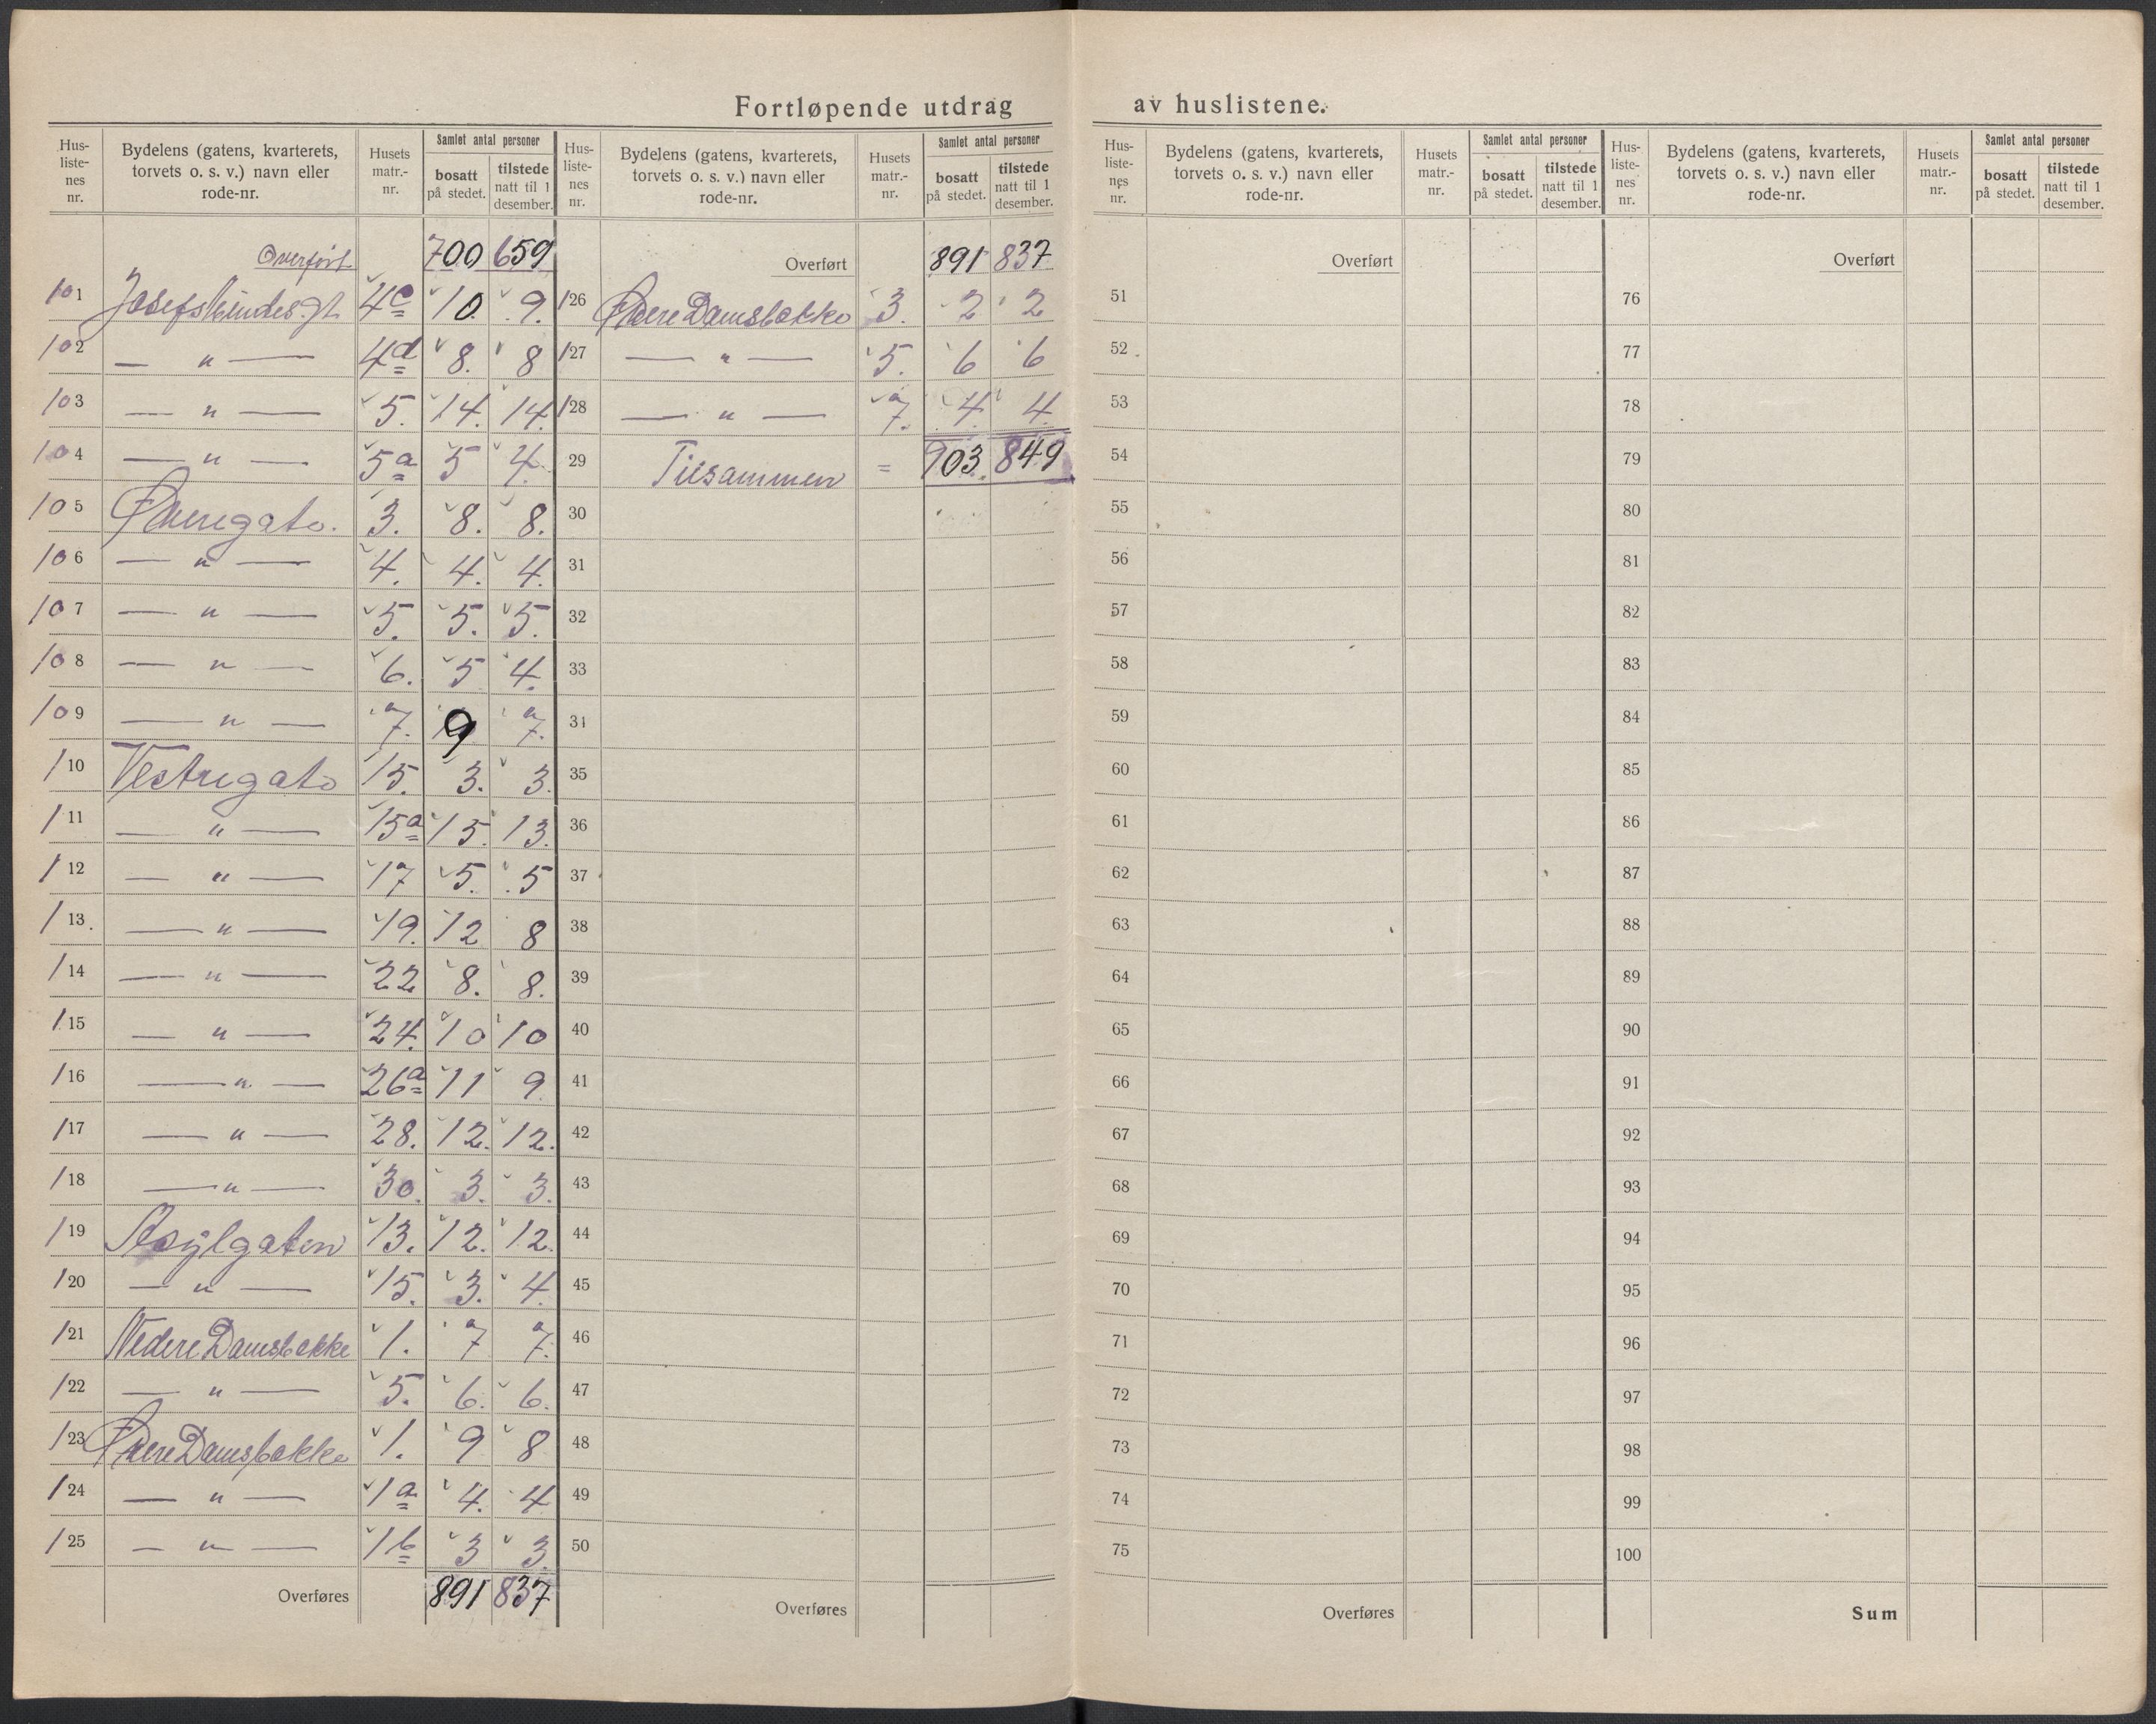 Fortløpende utdrag av huslistene.
Hus-listenes nr. | Bydelens (gatens, kvarterets, torvets o. s. v.) navn eller rode-nr. | Husets matr.-nr. | Samlet antal personer bosatt på stedet. | tilstede natt til 1 desember.
Overført 700 659
101 Josefs Mindes gt 4c 10. 9.
102 — " — 4d 8. 8
103 — " — 5. 14. 14.
104 — " — 5a 5 4.
105 Øveregate. 3. 8. 8.
106 — " — 4. 4. 4.
107 — " — 5. 5. 5.
108 — " — 6. 5 4.
109 — " — 7. 9 7.
110 Vestregate 15. 3. 3.
111 — " — 15a 15. 13.
112 — " — 17 5. 5
113. — " — 19. 12 8
114 — " — 22 8. 8.
115 — " — 24. 10 10
116 — " — 26a 11 9
117 — " — 28. 12. 12.
118 — " — 30. 3. 3.
119 Asylgaten 13. 12. 12.
120 — " — 15. 3. 4.
121 Nedere Damsbakke 1. 7 7.
122 — " — 5. 6. 6.
123 Øvere Damsbakke 1. 9 8
124 — " — 1a 4. 4
125 — " — 1b 3 3.
Overføres 891 837
Hus-listenes nr. | Bydelens (gatens, kvarterets, torvets o. s. v.) navn eller rode-nr. | Husets matr.-nr. | Samlet antal personer bosatt på stedet. | tilstede natt til 1 desember.
Overført 891 837
126 Øvere Damsbakke 3. 2 2
127 — " — 5. 6 6
128 — " — 7. 4. 4.
29 Tilsammen = 903. 849
30
31
32
33
34
35
36
37
38
39
40
41
42
43
44
45
46
47
48
49
50
Overføres
Hus-listenes nr. | Bydelens (gatens, kvarterets, torvets o. s. v.) navn eller rode-nr. | Husets matr.-nr. | Samlet antal personer bosatt på stedet. | tilstede natt til 1 desember.
Overført
51
52
53
54
55
56
57
58
59
60
61
62
63
64
65
66
67
68
69
70
71
72
73
74
75
Overføres
Hus-listenes nr. | Bydelens (gatens, kvarterets, torvets o. s. v.) navn eller rode-nr. | Husets matr.-nr. | Samlet antal personer bosatt på stedet. | tilstede natt til 1 desember.
Overført
76
77
78
79
80
81
82
83
84
85
86
87
88
89
90
91
92
93
94
95
96
97
98
99
100
Sum